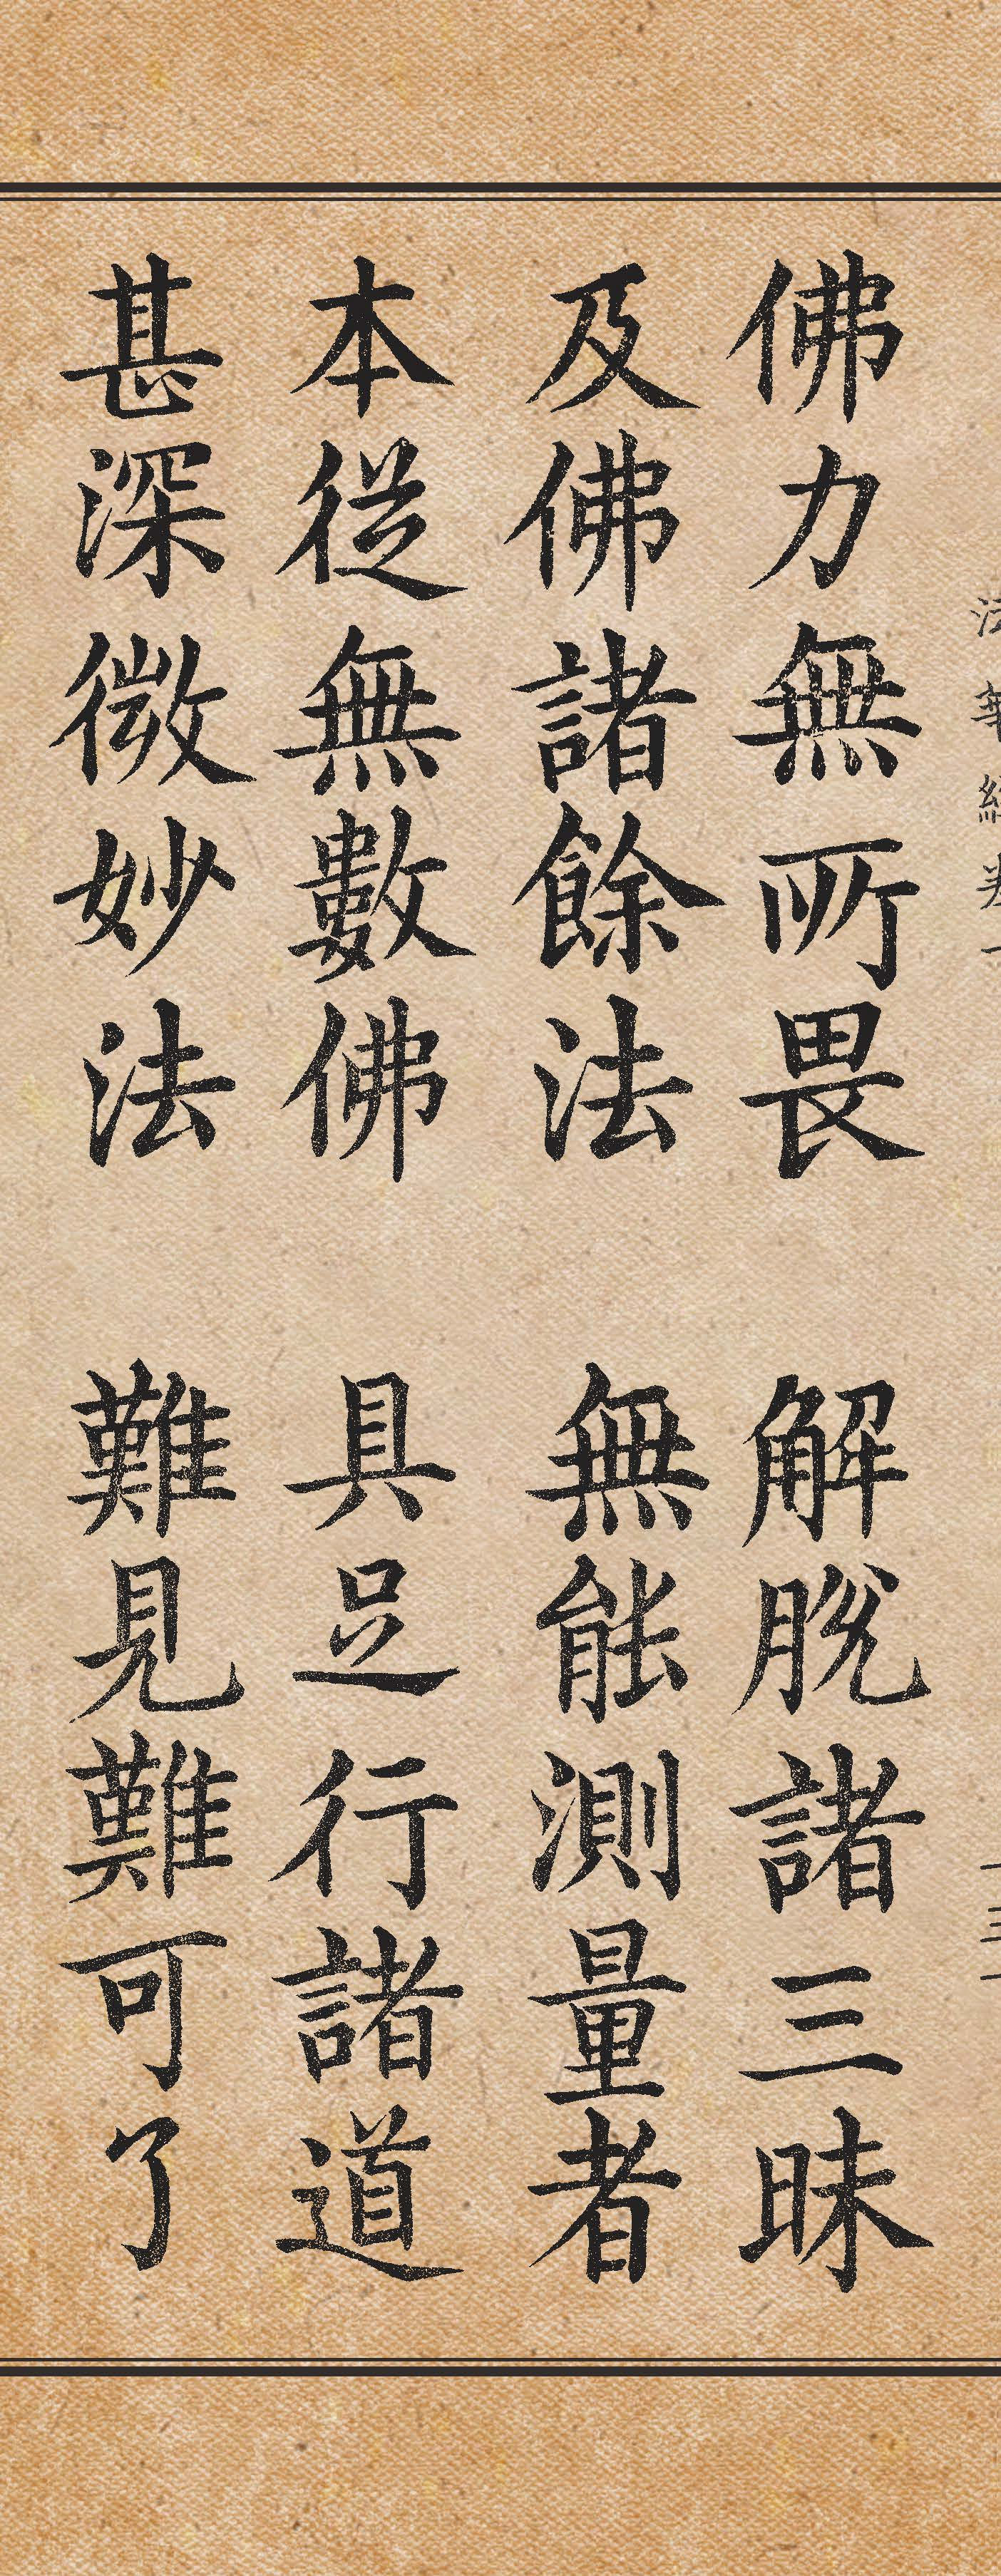 佛力無所畏　解脫諸三昧
及佛諸餘法　無能測量者
本從無數佛　具足行諸道
甚深微妙法　難見難可了